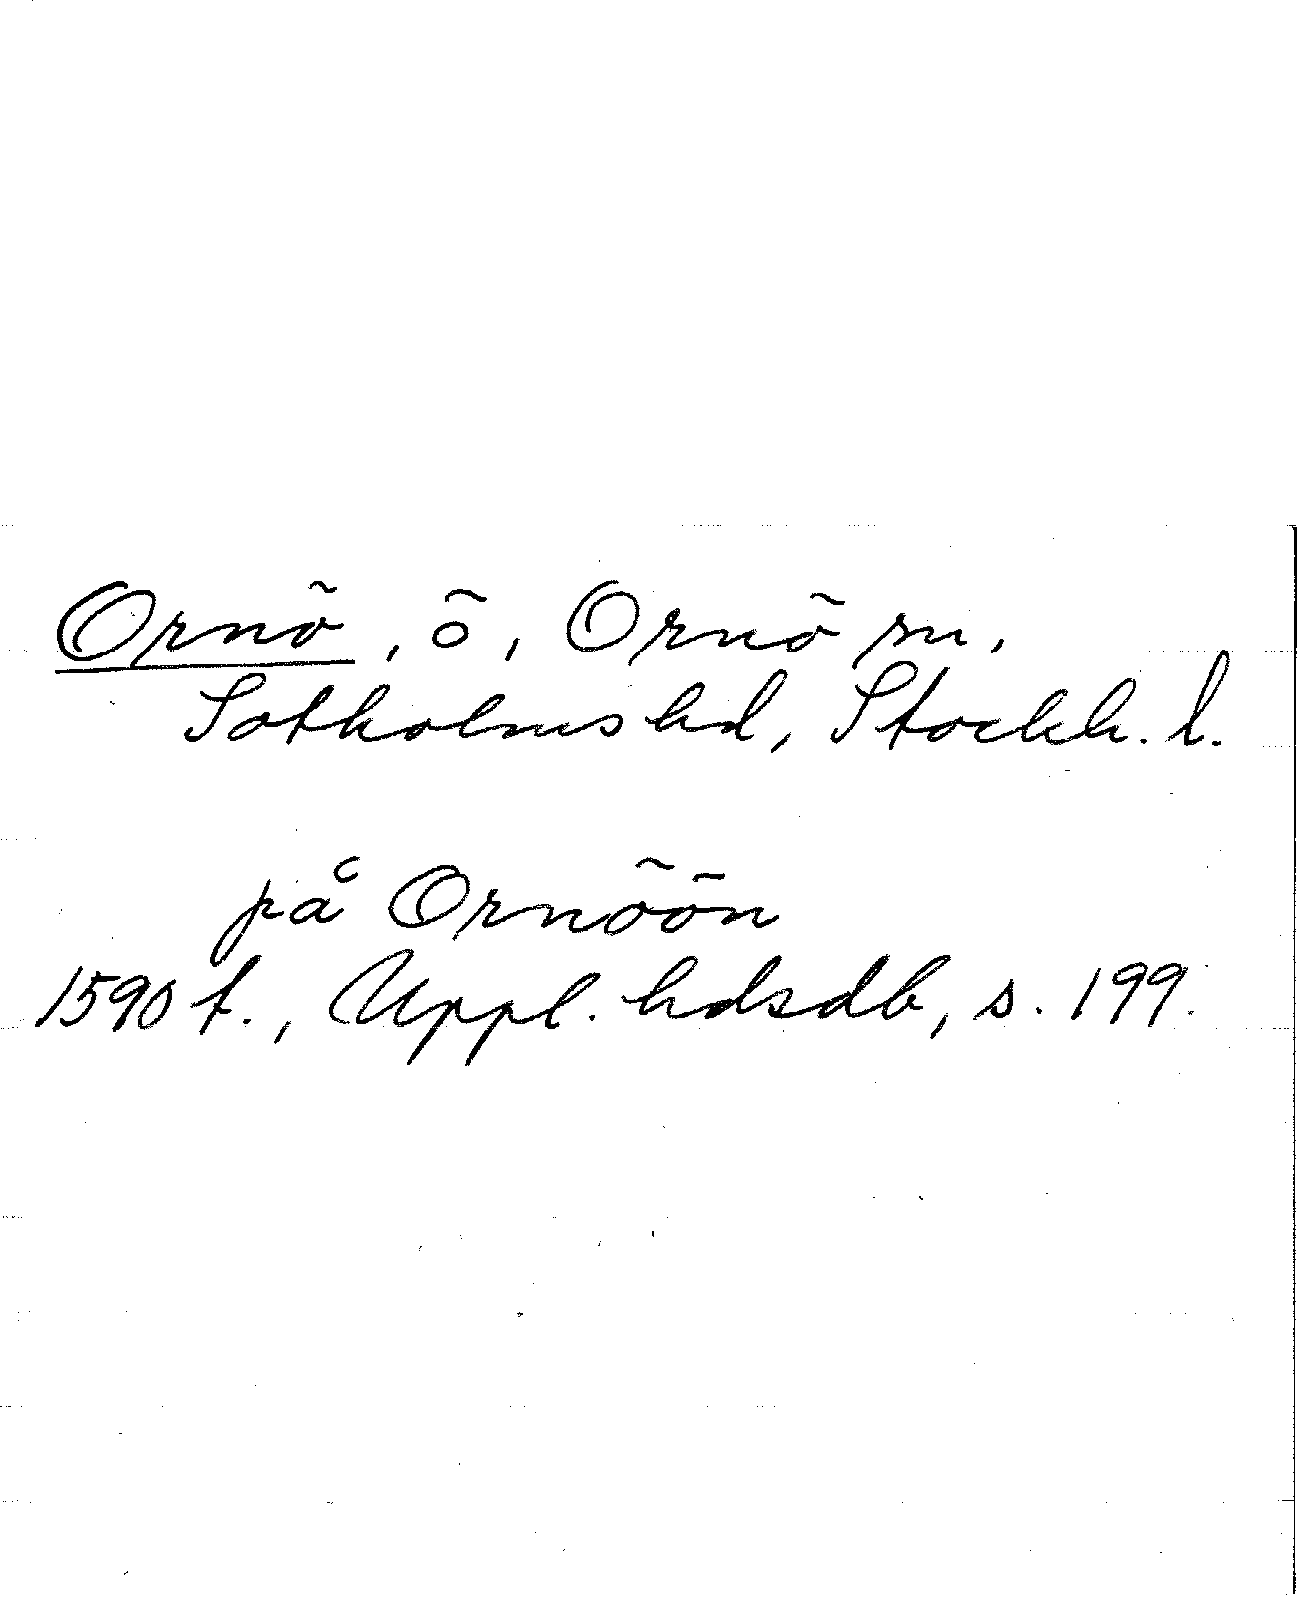 Ornö, ö, Ornö sn,
Sotholms hd, Stockh. l.
på Ornöön
1590 t., Uppl. hdsdb, s. 199.